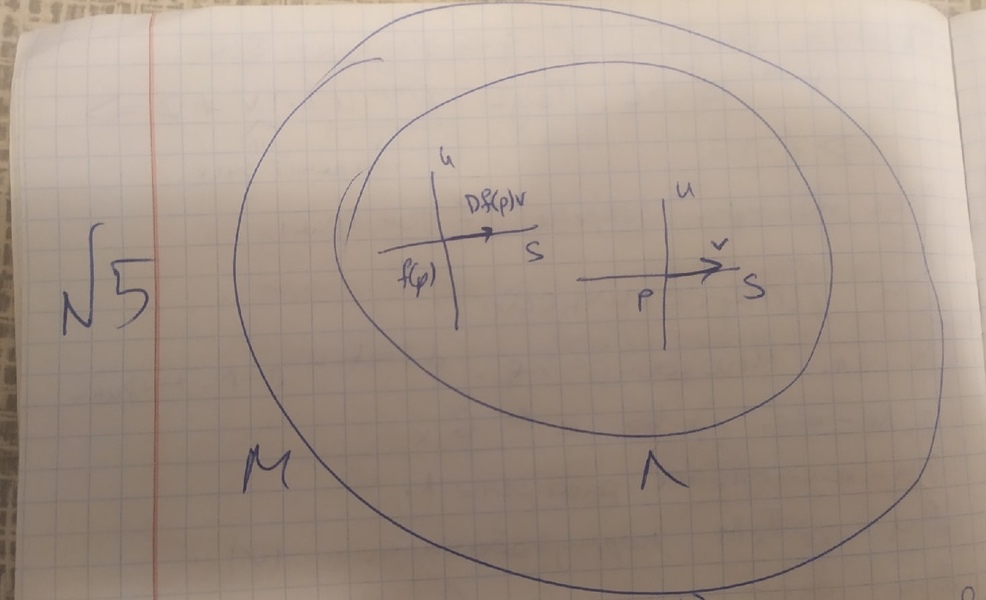 √5
u
Df(p)v
S
f(p)
u
v
p
S
M
Λ